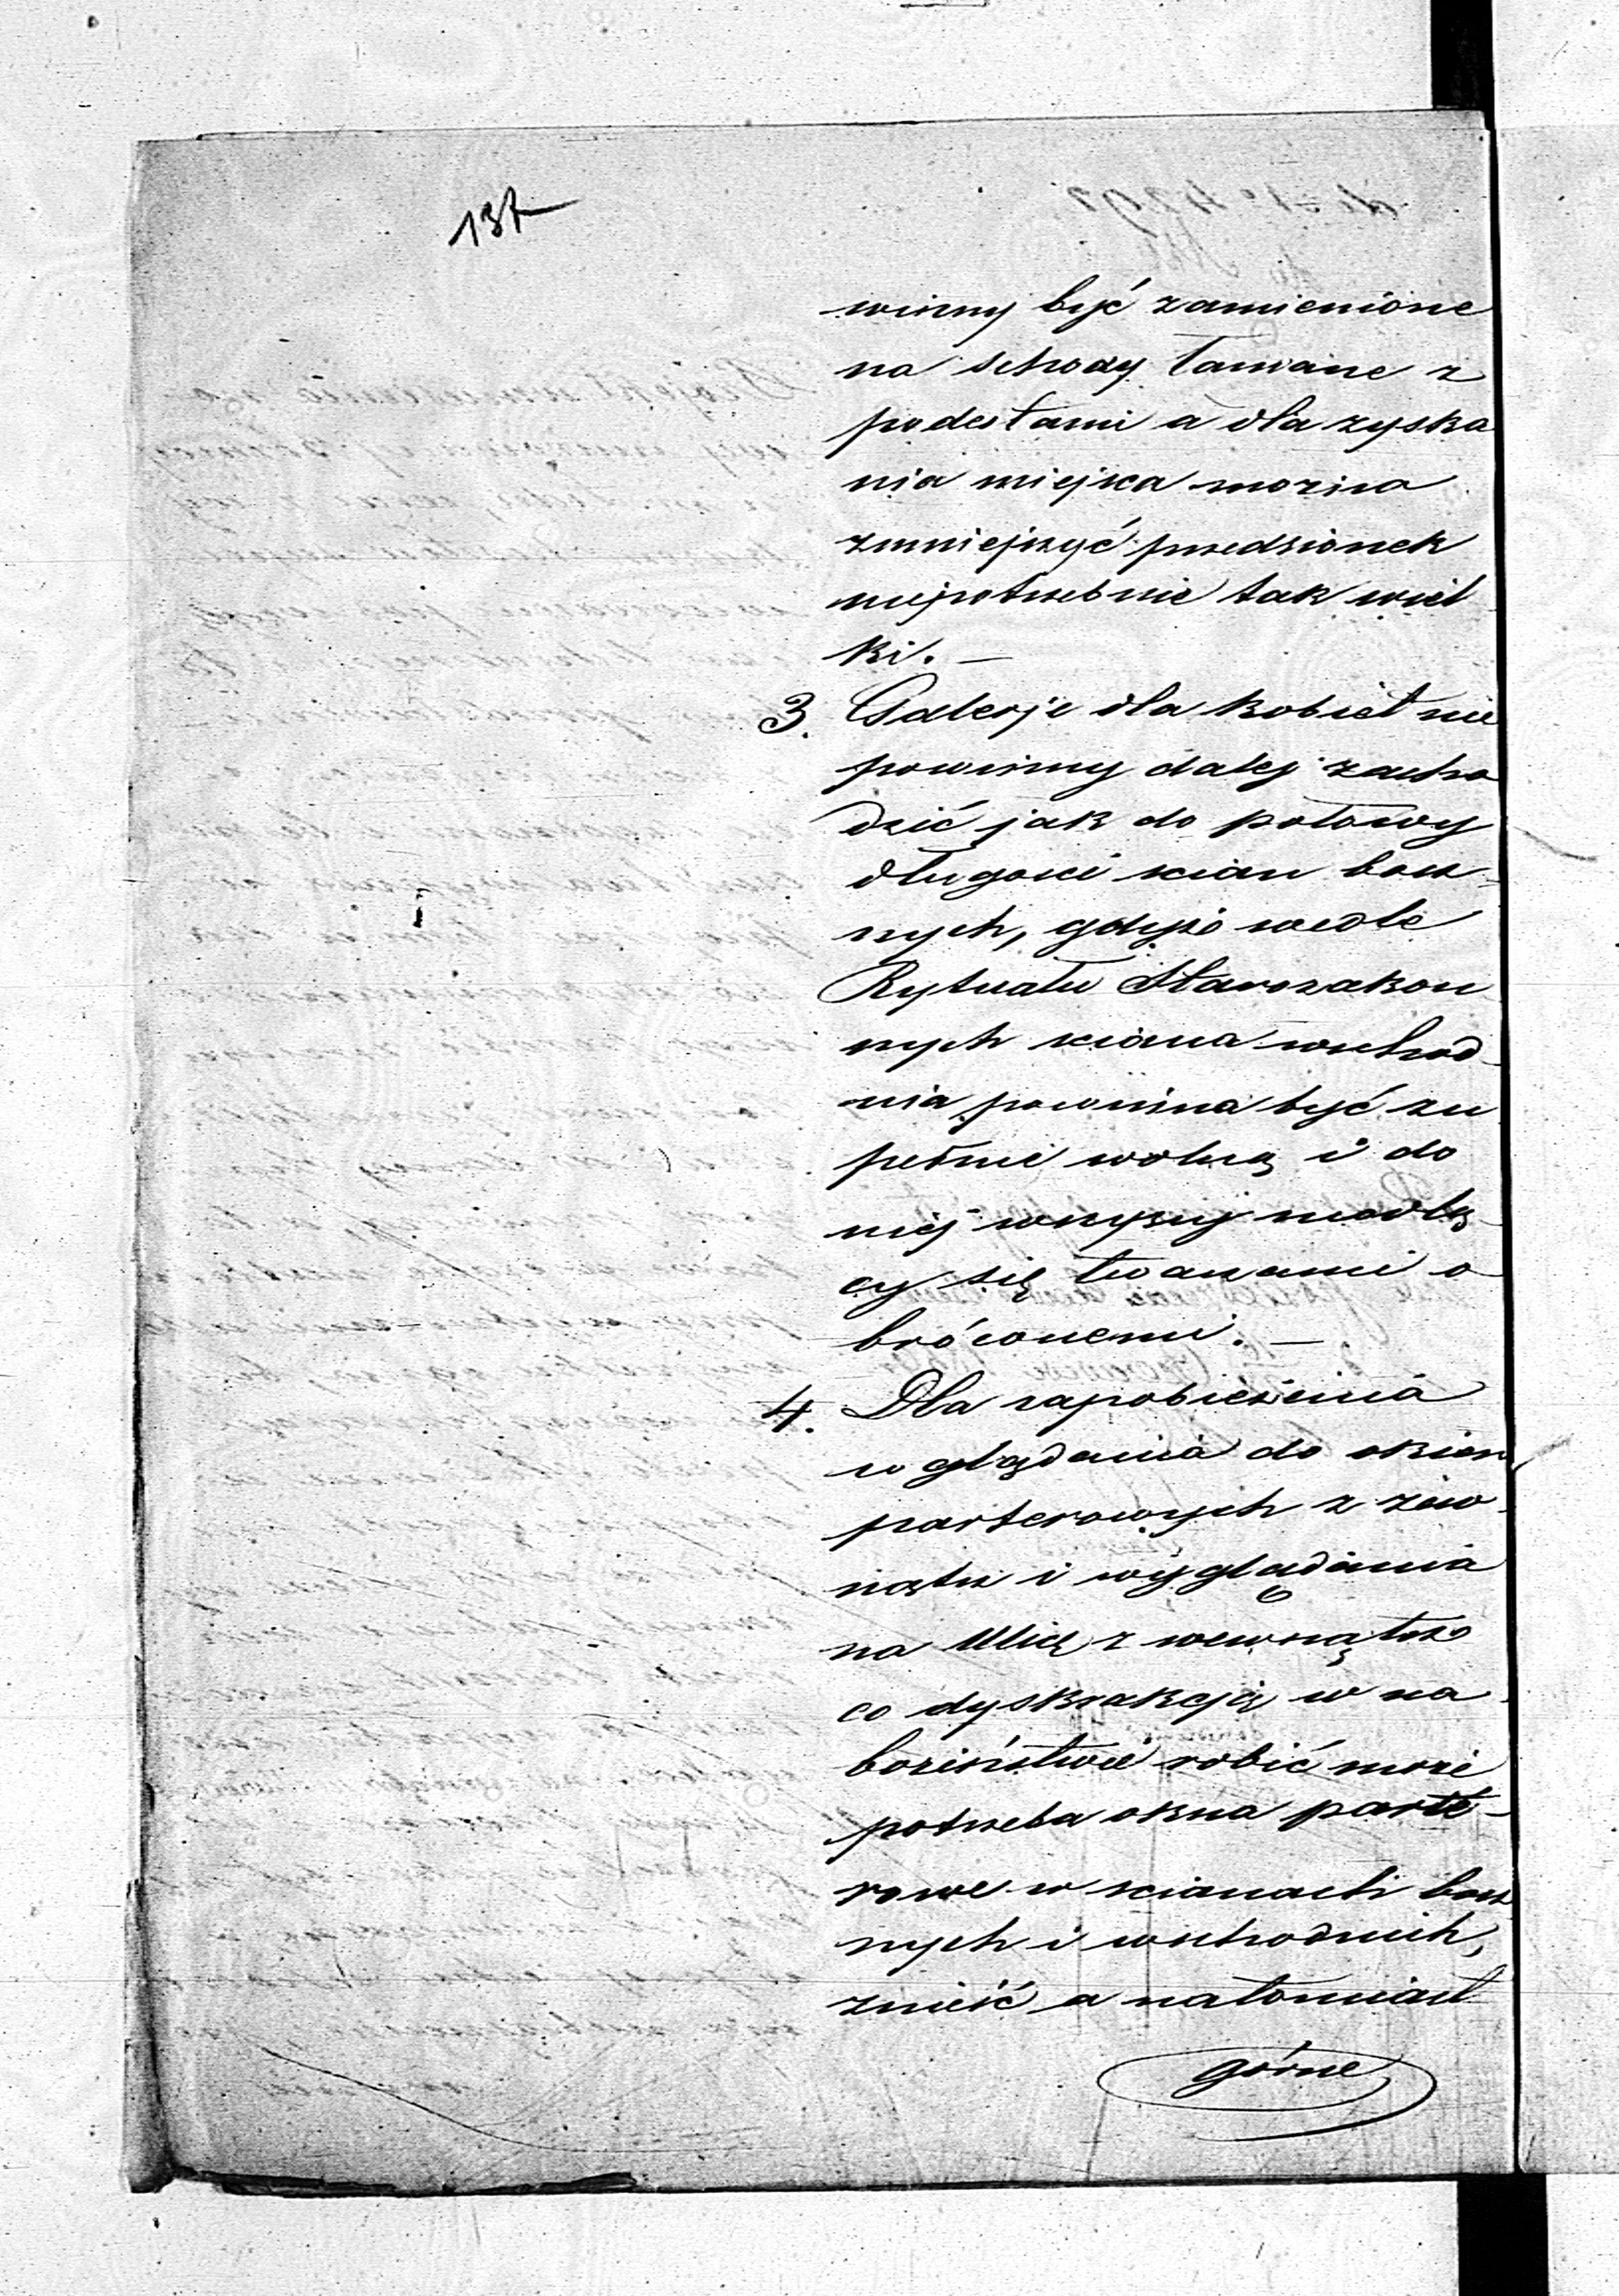 137
winny być zamienione
na schody łamane z
podestami a dla zyska
nia miejsca można
zmniejszyć przedsionek
niepotrzebnie tak wiel
ki. —
3. Galerje dla kobiet nie
powinny dalej zacho
dzić jak do połowy
długości ścian bocz-
nych, gdyż wedle
Rytuału Starozakon
nych sciana wschod-
nia powinna być zu
pełnie wolną i do
niej wszyscy modlą-
cy się twarzami o
bróconemi. —
4. Dla zapobieżenia
wglądania do okien
parterowych z zew-
nątrz i wyglądania
na ulicę z wewnątrz
co dyskrakcją w na-
bożeństwie robić może
potrzeba okna parte-
rowe w scianach bocz
nych i wschodnich,
znieść a natomiast
górne